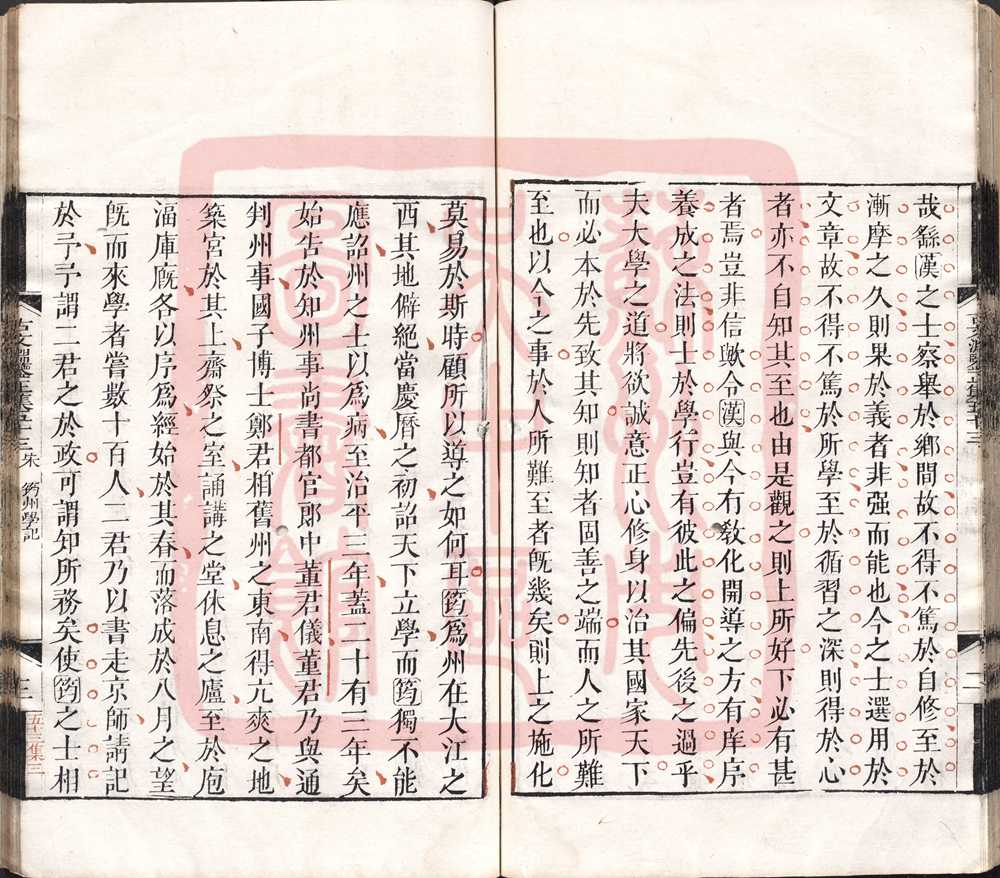 哉繇漢之士察舉於鄉閭故不得不篤於自修至於
漸摩之久則果於義者非强而能也今之士選用於
文章故不得不篤於所學至於循習之深則得於心
者亦不自知其至也由是觀之則上所好下必有甚
者焉豈非信歟令漢與今有敎化開導之方有庠序
養成之法則士於學行豈有彼此之偏先後之過乎
夫大學之道將欲誠意正心修身以治其國家天下
而必本於先致其知則知者固善之端而人之所難
至也以今之事於人所難至者旣幾矣則上之施化
莫易於斯時顧所以導之如何耳筠爲州在大江之
西其地僻絕當慶曆之初詔天下立學而筠獨不能
應詔州之士以爲病至治平三年蓋二十有三年矣
始告於知州事尚書都官郎中董君儀董君乃與通
判州事國子博士鄭君相舊州之東南得亢爽之地
築宮於其上齋祭之室誦講之堂休息之廬至於庖
湢庫廐各以序爲經始於其春而落成於八月之望
旣而來學者嘗數十百人二君乃以書走京師請記
於予予謂二君之於政可謂知所務矣使筠之士相
宋
筠州學記
三
五十三集三